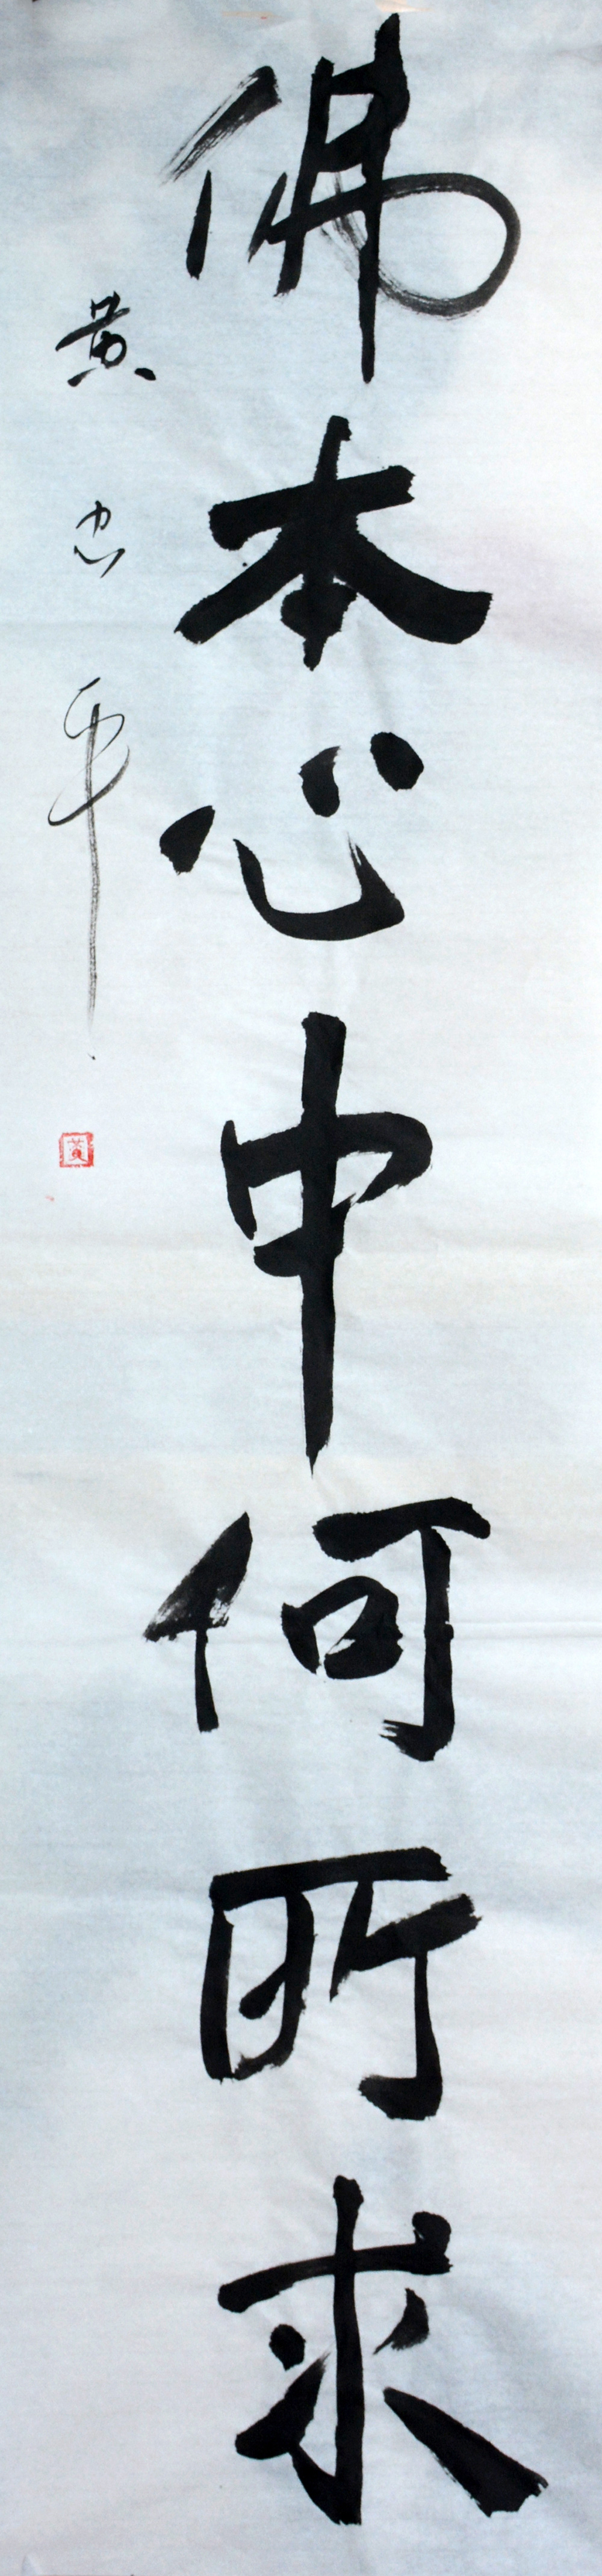 佛本心中何所求
黄忠平
黄